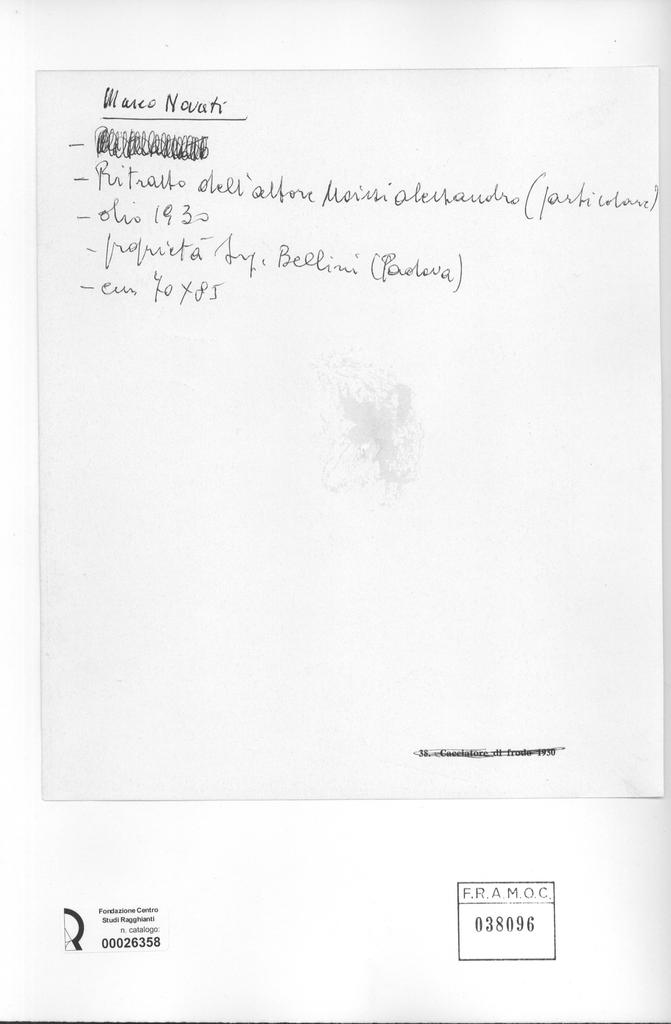 Marco Novati
-
- Ritratto dell'attore Moissi Alessandro (particolare)
- olio 1930
- proprietà Sig. Bellini (Padova)
- cm 70 x 85
38. Cacciatore di frodo 1930
Fondazione Centro
Studi Ragghianti
n. catalogo:
00026358
F.R.A.M.O.C.
038096